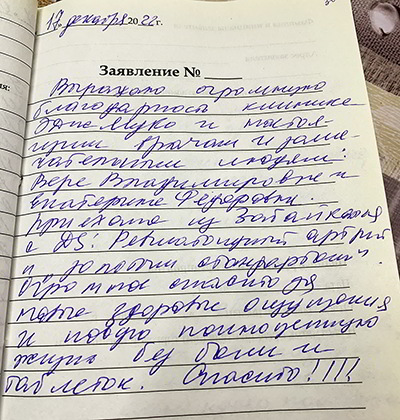 17. декабря 2022 г.
Заявление №
Выражаю огромную
благодарность клинике
и настоя-
щим врачам и заме-
чательным людям:
Вере Владимировне и
Екатерине Федоровне.
Приехала из Забайкалья
с DS: Ревматоидный артрит
и "золотым стандартом".
Огромное спасибо за
новые здоровые ощущения
и новую полноценную
жизнь без боли и
таблеток. Спасибо!!!!